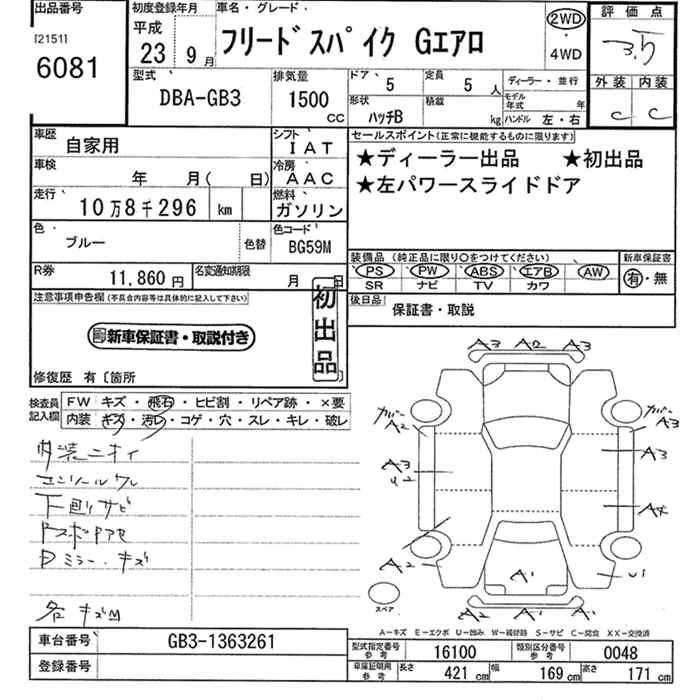 出品番号
[2151]
6081
初度登録年月
平成
23 9月
車名・グレード、
フリードスパイク Gエアロ
2WD
・
4WD
評価点
3.5
外装 内装
C C
型式
DBA-GB3
排気量
1500
CC
ドア 5
定員 5 人
形状
ハッチB
積載
kg
ディーラー・並行
モデル年式 年
ハンドル 左・右
車歴
自家用
シフト
IAT
車検
年 月( 日)
冷房
AAC
走行
10万8千296 km
燃料
ガソリン
色
ブルー
色替
色コード
BG59M
R券
11,860円
名変通知期限
月 日
セールスポイント(正常に機能するものに限ります)
★ディーラー出品 ★初出品
★左パワースライドドア
装備品 (純正品に限り○をつけてください)
PS PW ABS エアB AW
SR ナビ TV カワ
新車保証書
有・無
後日品
保証書・取説
注意事項申告欄(不具合内容等は具体的に記入して下さい)
新車保証書・取説付き
初出品
修復歴 有〔箇所
検査員記入欄
FW キズ・飛石・ヒビ割・リペア跡・×要
内装 キズ・汚レ・コゲ・穴・スレ・キレ・破レ
下回りサビ
ミラー.キズ
A3 A2 A3
カバー
A2
カバー
A3
A3
A3
U2
A2
A1
U1
A2 A1 A2
スペア
A−キズ E−エクボ U−凹み W−補修跡 S−サビ C−腐食 XX−交換済
車台番号
GB3-1363261
登録番号
型式指定番号
参考
16100
類別区分番号
参考
0048
車庫証明用
参考
長さ 421 cm
幅 169 cm
高さ 171 cm